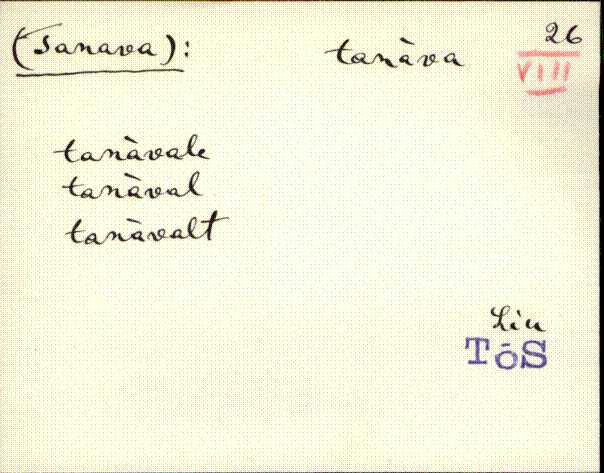 (Sanava): tanàva 26
VIII
tanàvale
tanàval
tanàvalt
Lin
TōS